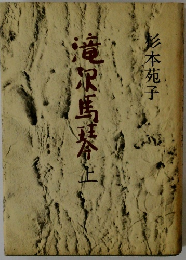 杉本苑子
滝沢馬琴
上